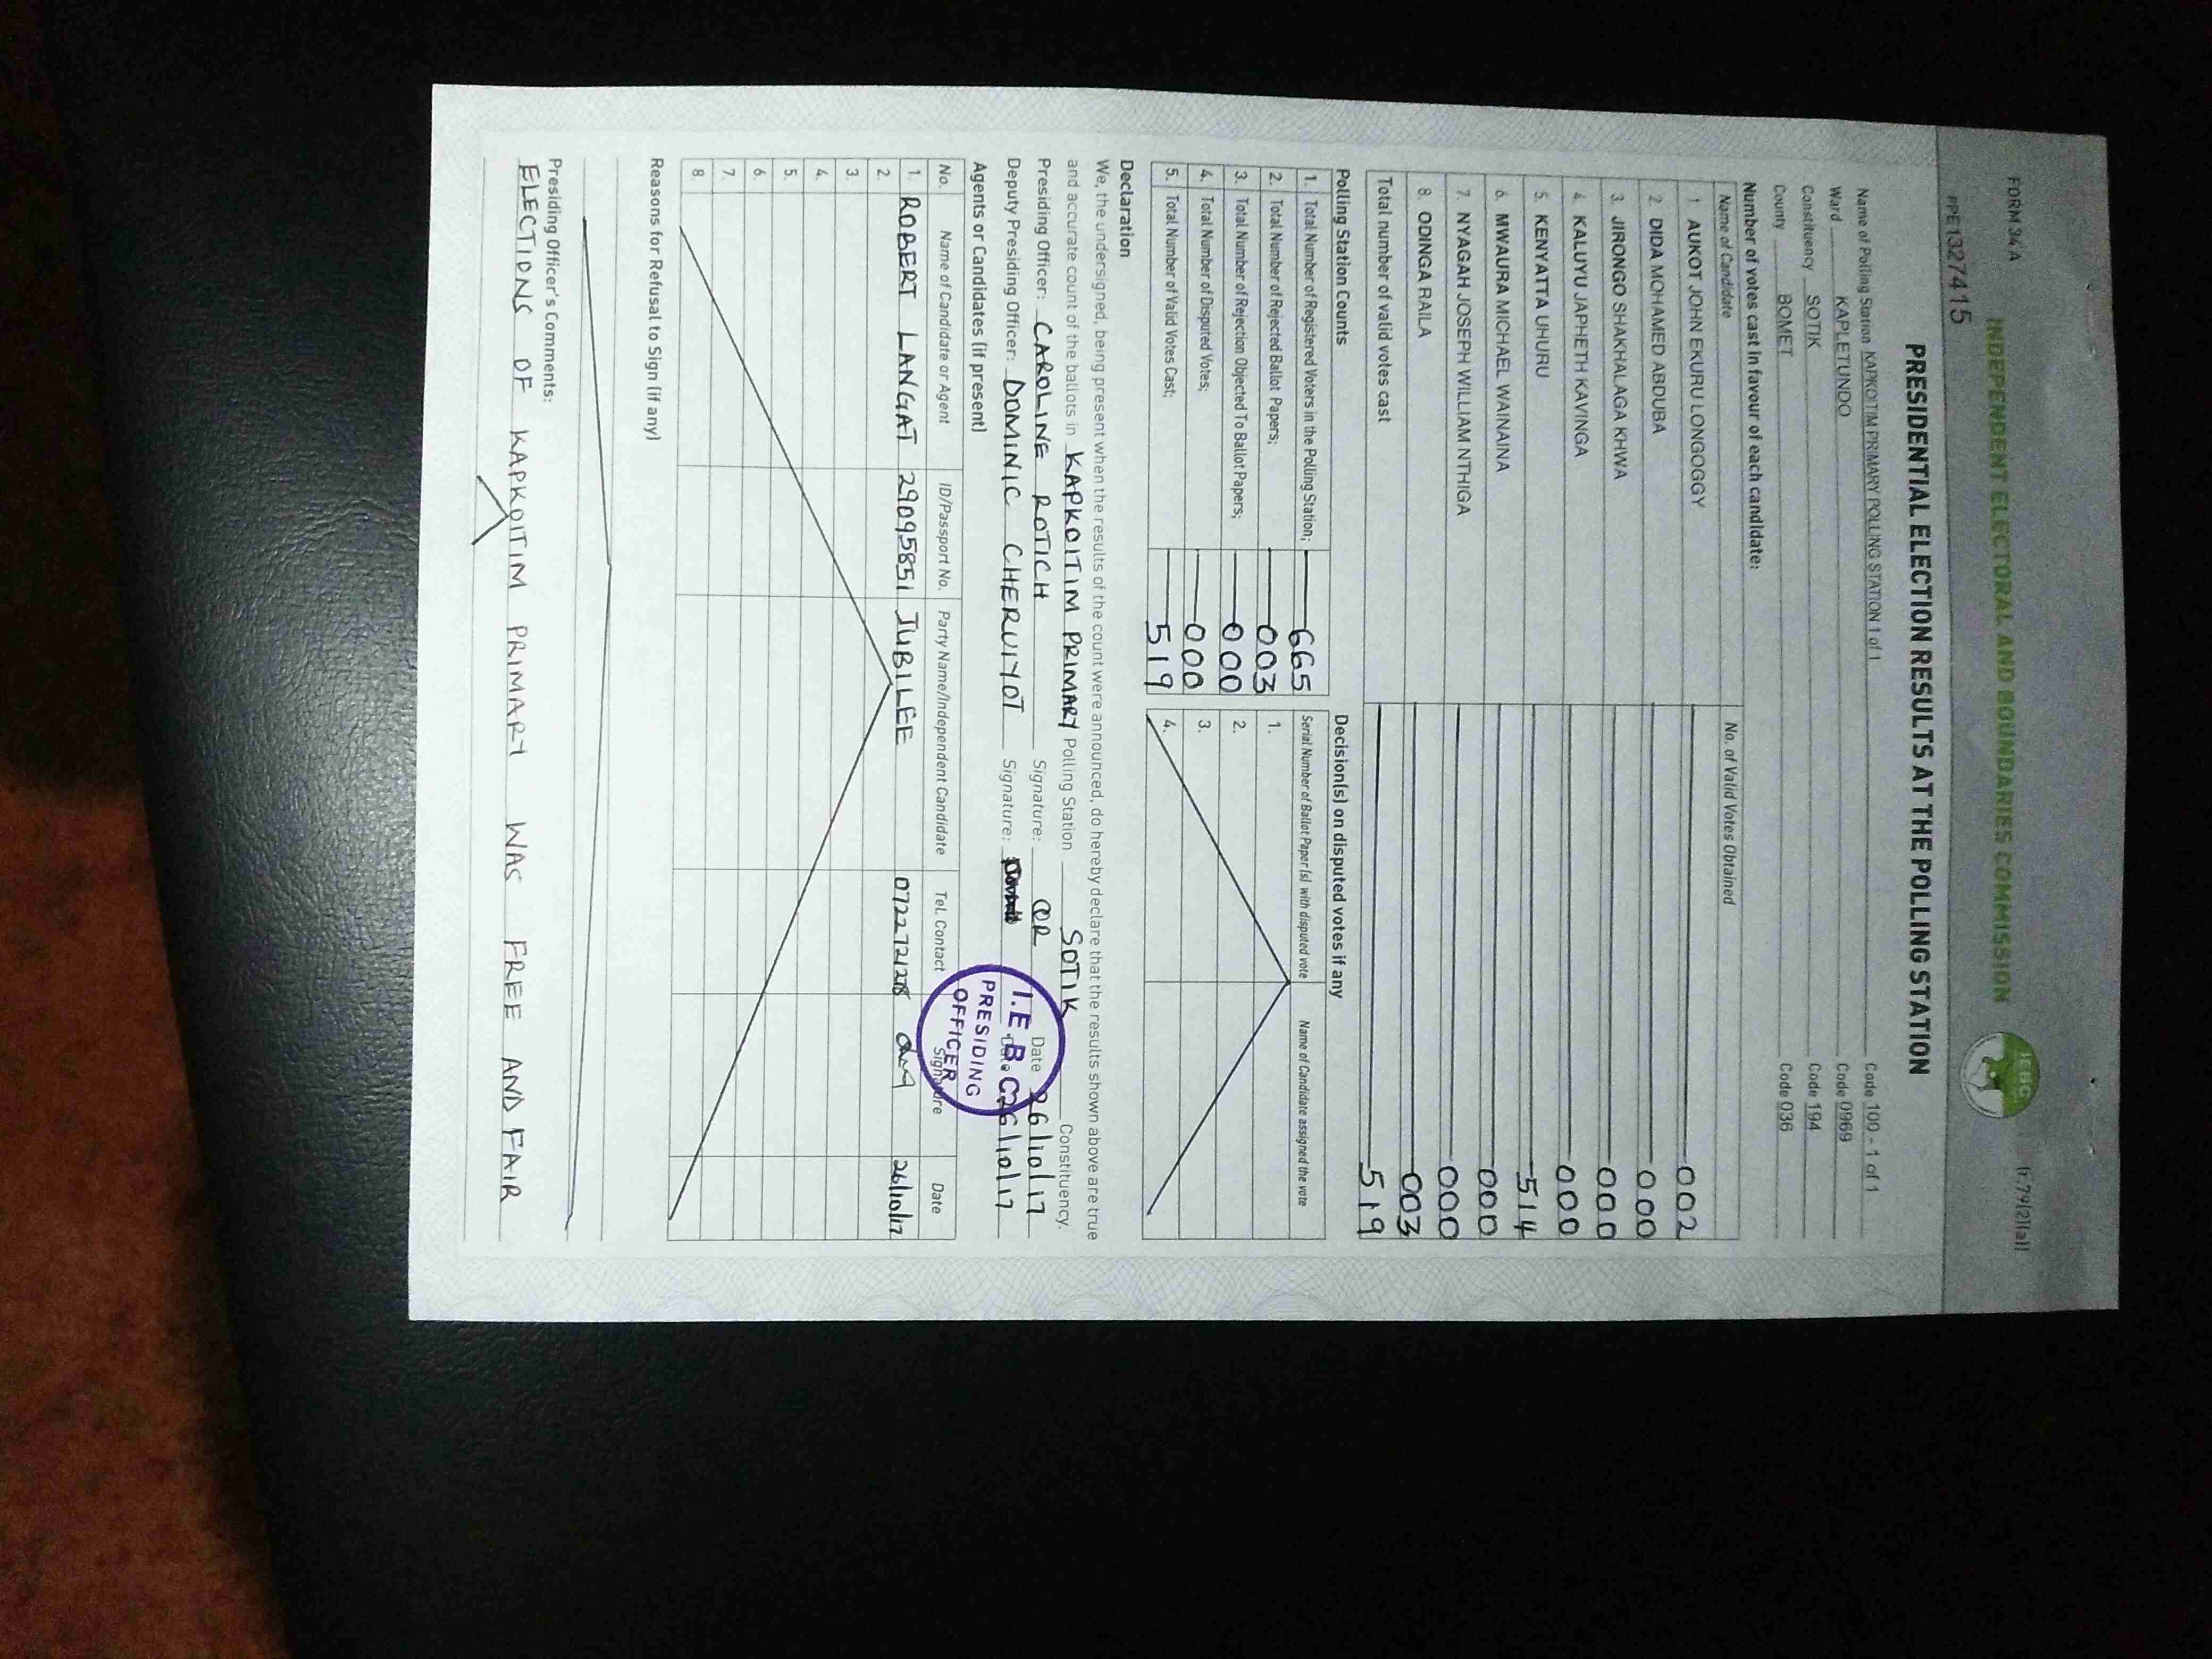 FORM 34A
(r.79(2)(a))
INDEPENDENT ELECTORAL AND BOUNDARIES COMMISSION
IEBC
PPE1327415
PRESIDENTIAL ELECTION RESULTS AT THE POLLING STATION
Name of Polling Station KAPKOITIM PRIMARY POLLING STATION 1 of 1 Code 100 - 1 of 1
Ward KAPLETUNDO Code 0969
Constituency SOTIK Code 194
County BOMET Code 036
Number of votes cast in favour of each candidate:
Name of Candidate No. of Valid Votes Obtained
1 AUKOT JOHN EKURU LONGOGGY 002
2 DIDA MOHAMED ABDUBA 000
3. JIRONGO SHAKHALAGA KHWA 000
4. KALUYU JAPHETH KAVINGA 000
5. KENYATTA UHURU 514
6. MWAURA MICHAEL WAINAINA 000
7. NYAGAH JOSEPH WILLIAM NTHIGA 000
8. ODINGA RAILA 003
Total number of valid votes cast 519
Polling Station Counts
1. Total Number of Registered Voters in the Polling Station; 665
2. Total Number of Rejected Ballot Papers; 003
3. Total Number of Rejection Objected To Ballot Papers; 000
4. Total Number of Disputed Votes; 000
5. Total Number of Valid Votes Cast; 519
Decision(s) on disputed votes if any
Serial Number of Ballot Paper (s) with disputed vote Name of Candidate assigned the vote
1.
2.
3.
4.
Declaration
We, the undersigned, being present when the results of the count were announced, do hereby declare that the results shown above are true
and accurate count of the ballots in KAPKOITIM PRIMARY Polling Station SOTIK Constituency.
Presiding Officer: CAROLINE ROTICH Signature: CR Date 26/10/17
Deputy Presiding Officer: DOMINIC CHERUIYOT Signature: Date 26/10/17
I.E.B.C
PRESIDING
OFFICER
Agents or Candidates (if present)
No. Name of Candidate or Agent ID/Passport No. Party Name/Independent Candidate Tel. Contact Signature Date
1. ROBERT LANGAT 29095851 JUBILEE 26/10/17
2.
3.
4.
5.
6.
7.
8.
Reasons for Refusal to Sign (if any)
Presiding Officer's Comments:
ELECTIONS OF KAPKOITIM PRIMARY WAS FREE AND FAIR